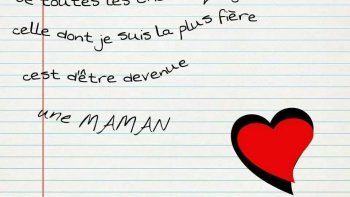 de toutes les
celle dont je suis la plus fière
cest d'être devenue
une MAMAN